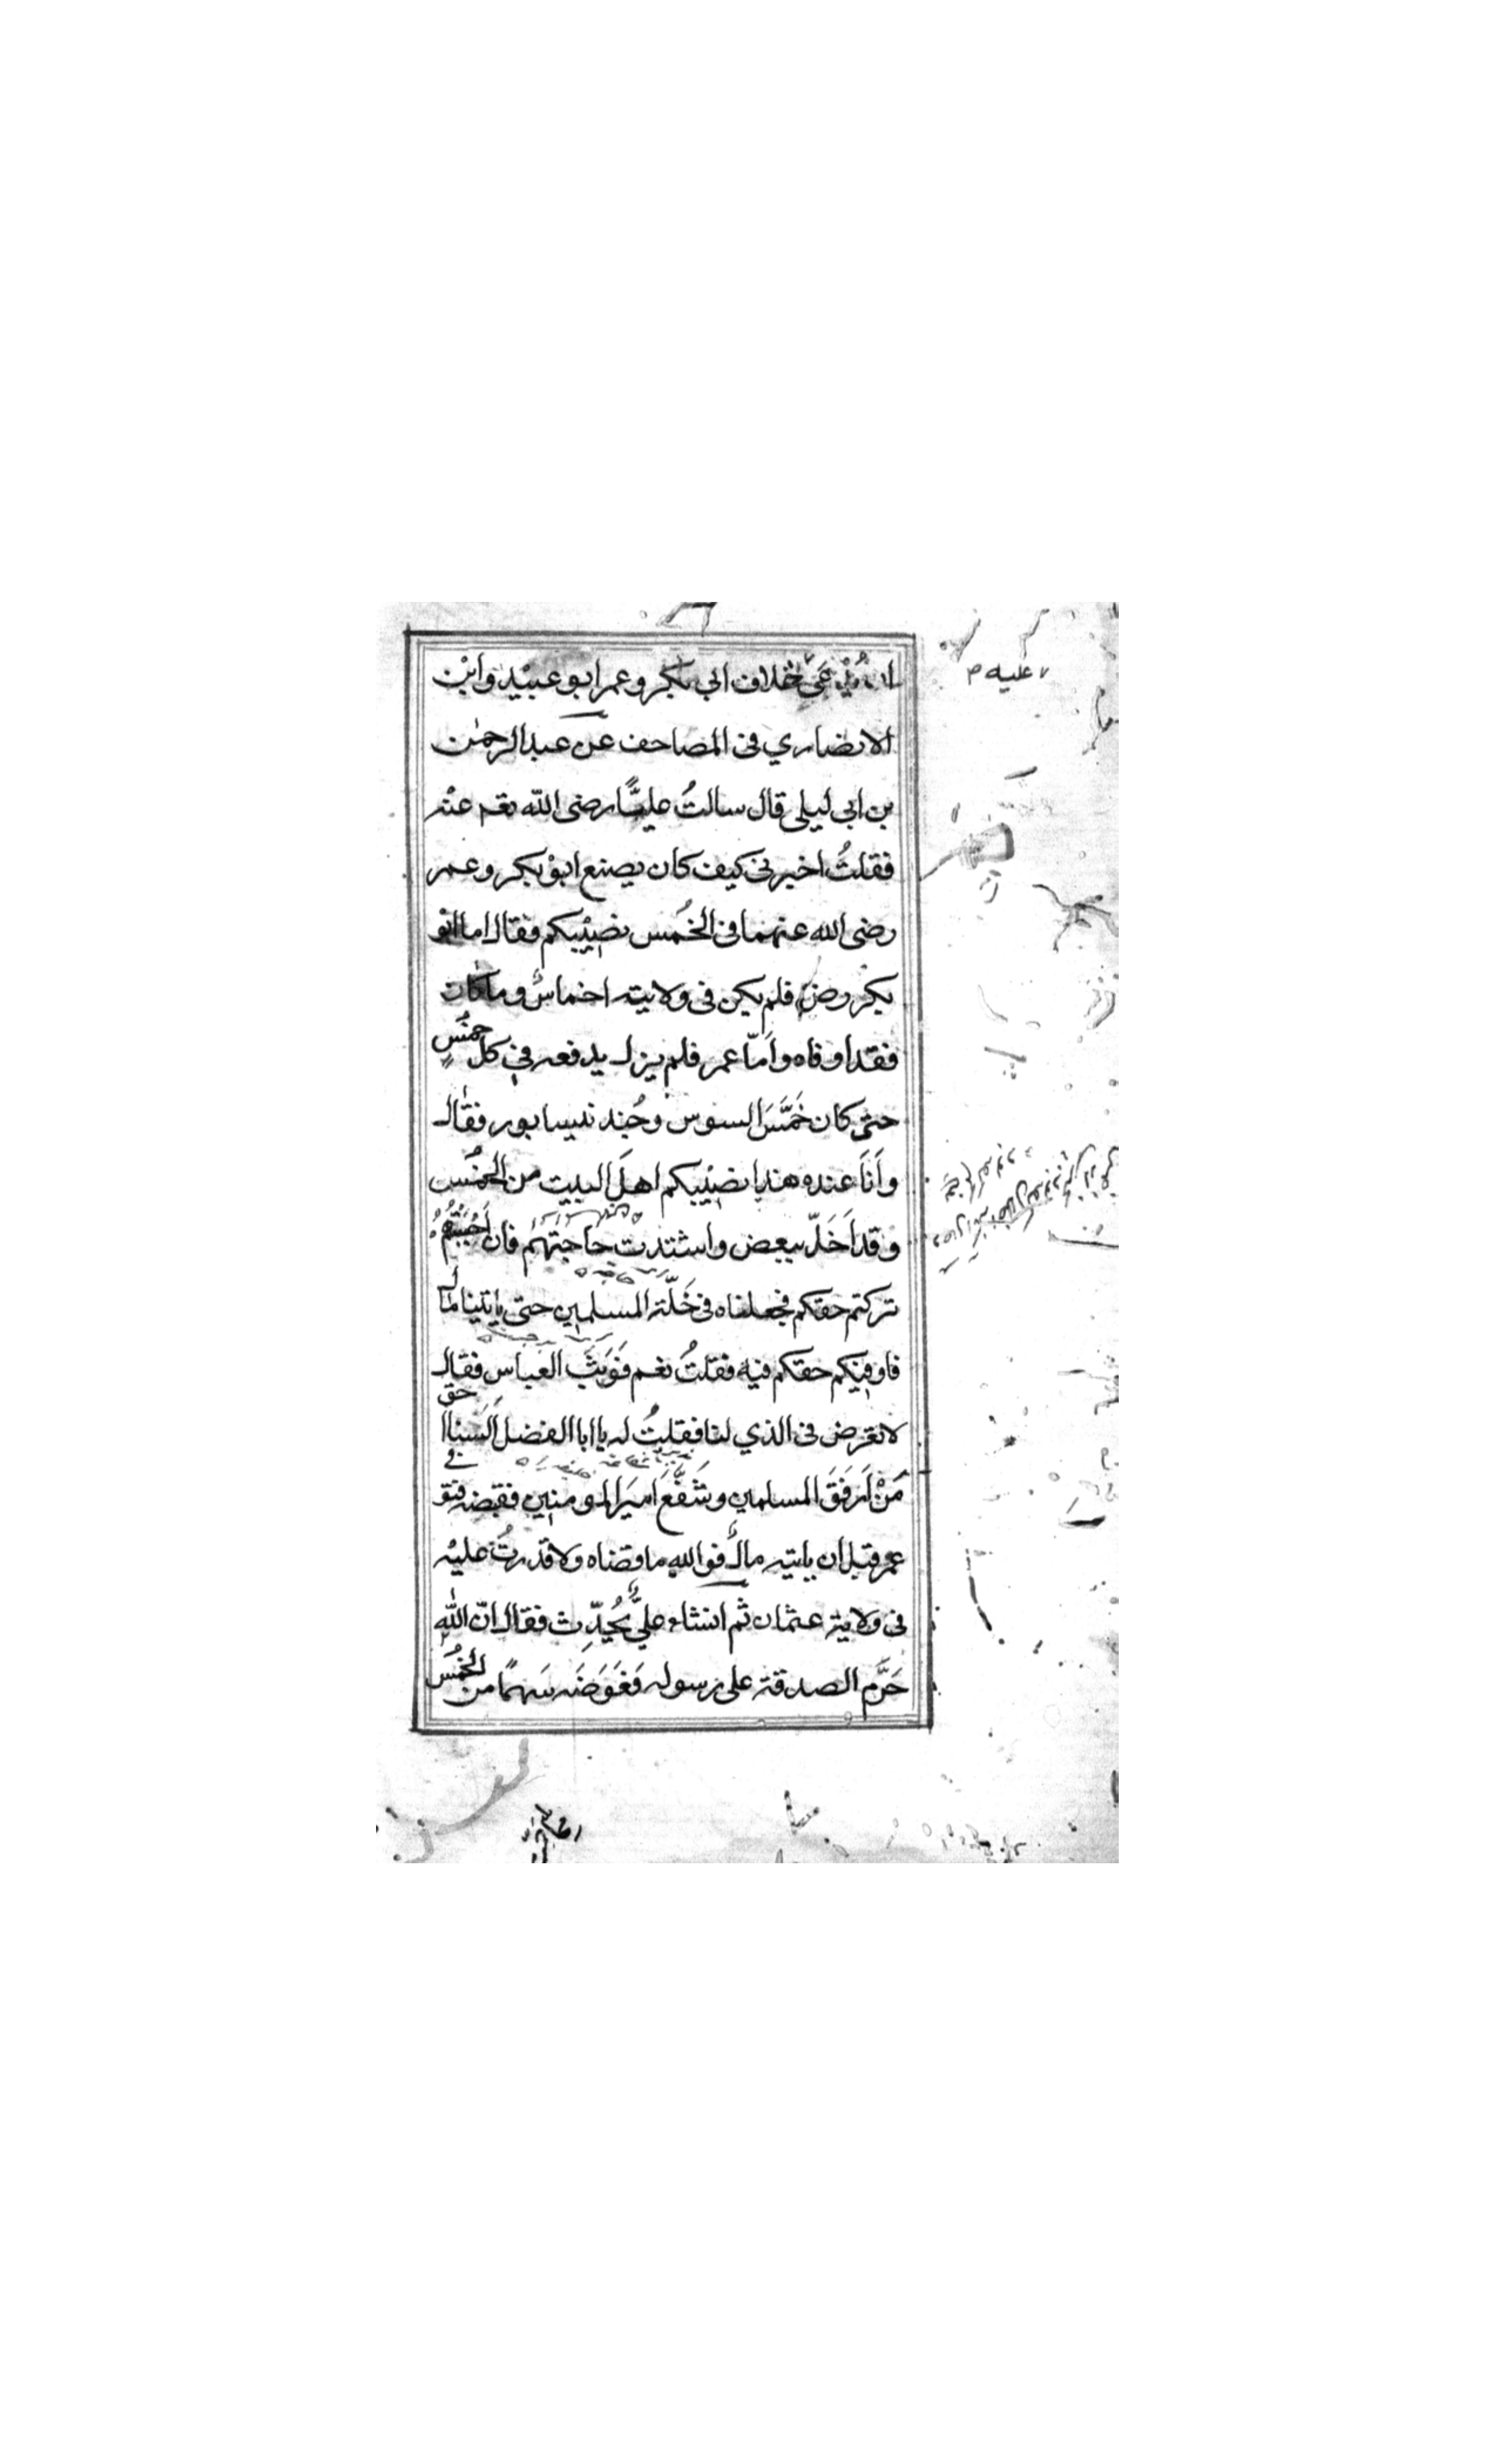 ان يُدَّعَى خلاف ابي بكر وعمر ابو عبيد وابن
الانضاري في المصاحف عن عبد الرحمٰن
بن ابي ليلى قال سالتُ عليًّا رضى الله تعم عنه
فقلتُ اخبرني كيف كان يصنع ابو بكر وعمر
رضى الله عنهما في الخُمس نصيبكم فقال اما ابو
بكر رض فلم يكن في ولايته اخماسٌ وما كان
فقد اوفاه واَمّا عمر فلم يزل يدفعه في كل خمُسٍ
حتى كان خَمَّسَ السوس وجُند نيسابور فقال
واَنَا عنده هذا نصيبكم اهلَ البيت من الخمُس
وقد اَخَلّ ببعض واشتدت حاجتهم فان اَحْبَبْتُم
تركتم حقكم فجعلناه في خَلّة المسلمين حتى ياتينا مال
فاوفيكم حقكم فيه فقلتُ نعم فَوَثَبَ العباس فقال
لا تعرض في الذي لنا فقلتُ له يا ابا الفضل اَلسنا احق
مَنْ اَرفَقَ المسلمين وشَفَّعَ اَميرَ المومنين فقبضه فتوفي
عمر قبل ان ياتيه مالٌ فوالله ما قضناه ولا قدرتُ عليه
في ولاية عثمان ثم انشاء عليٌّ يُحدِّث فقال انّ الله
حَرَّم الصدقة على رسوله فَعَوَضَه سَهمًا من الخمُس
عليه